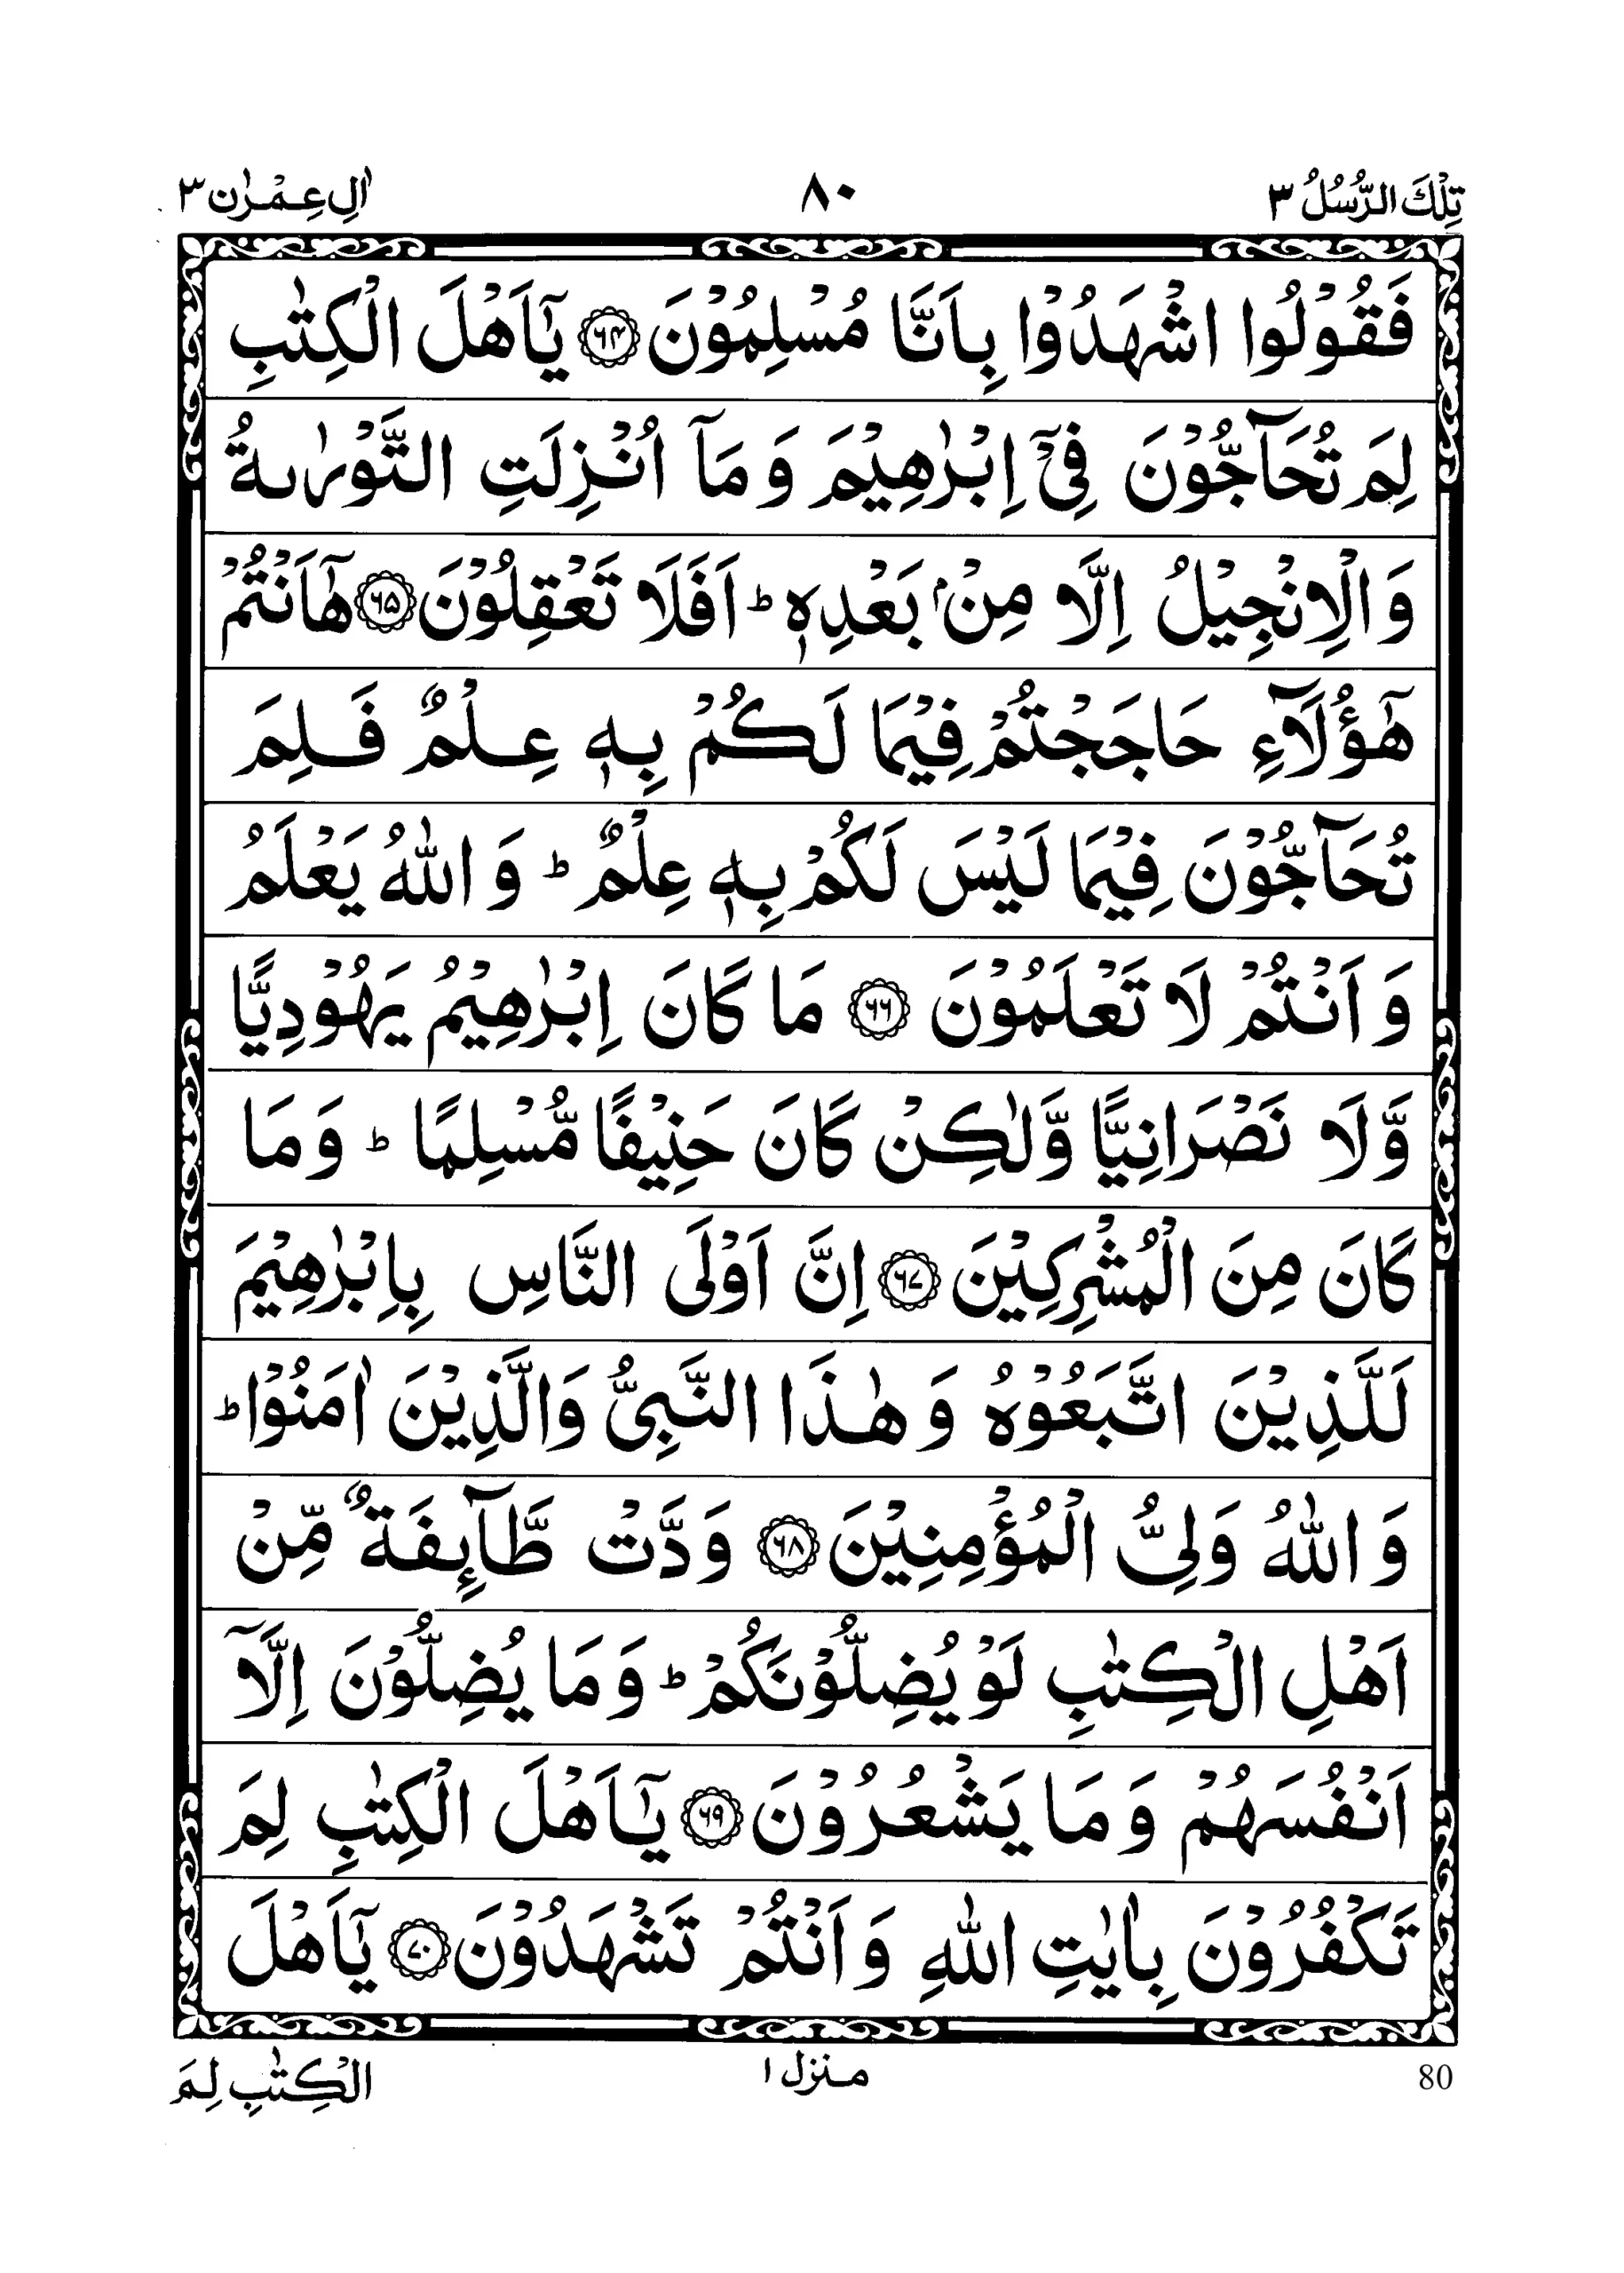 تِلْكَ الرُّسُلُ ٣
٨٠
اٰلِ عِمْرٰن ٣
فَقُوْلُوا اشْهَدُوْا بِاَنَّا مُسْلِمُوْنَ ﴿۶۴﴾ يٰۤاَهْلَ الْكِتٰبِ
لِمَ تُحَآجُّوْنَ فِىْۤ اِبْرٰهِيْمَ وَ مَاۤ اُنْزِلَتِ التَّوْرٰىةُ
وَالْاِنْجِيْلُ اِلَّا مِنْۢ بَعْدِهٖ ؕ اَفَلَا تَعْقِلُوْنَ ﴿۶۵﴾ هٰۤاَنْتُمْ
هٰۤؤُلَآءِ حَاجَجْتُمْ فِيْمَا لَكُمْ بِهٖ عِلْمٌ فَلِمَ
تُحَآجُّوْنَ فِيْمَا لَيْسَ لَكُمْ بِهٖ عِلْمٌ ؕ وَ اللّٰهُ يَعْلَمُ
وَ اَنْتُمْ لَا تَعْلَمُوْنَ ﴿۶۶﴾ مَا كَانَ اِبْرٰهِيْمُ يَهُوْدِيًّا
وَّلَا نَصْرَانِيًّا وَّلٰكِنْ كَانَ حَنِيْفًا مُّسْلِمًا ؕ وَ مَا
كَانَ مِنَ الْمُشْرِكِيْنَ ﴿۶۷﴾ اِنَّ اَوْلَى النَّاسِ بِاِبْرٰهِيْمَ
لَلَّذِيْنَ اتَّبَعُوْهُ وَ هٰذَا النَّبِىُّ وَالَّذِيْنَ اٰمَنُوْا ؕ
وَ اللّٰهُ وَلِىُّ الْمُؤْمِنِيْنَ ﴿۶۸﴾ وَدَّتْ طَّآئِفَةٌ مِّنْ
اَهْلِ الْكِتٰبِ لَوْ يُضِلُّوْنَكُمْ ؕ وَ مَا يُضِلُّوْنَ اِلَّاۤ
اَنْفُسَهُمْ وَ مَا يَشْعُرُوْنَ ﴿۶۹﴾ يٰۤاَهْلَ الْكِتٰبِ لِمَ
تَكْفُرُوْنَ بِاٰيٰتِ اللّٰهِ وَ اَنْتُمْ تَشْهَدُوْنَ ﴿۷۰﴾ يٰۤاَهْلَ
80
منزل ١
الْكِتٰبِ لِمَ